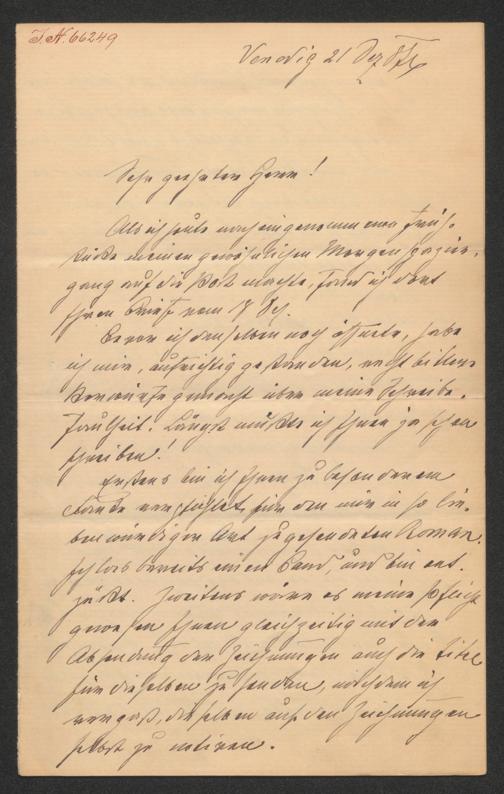 J.N. 66249
Venedig 21 Dez
Sehr geehrter Herr!
Als ich heute nach eingenommenen Früh-
stücke meinen gewöhnlichen Morgenspazier-
gang auf die Post machte, fand ich dort
Ihren Brief vom
Bevor ich denselben noch öffnete, habe
ich mir, aufrichtig gestanden, recht bittere
Vorwürfe gemacht über meine Schreibe-
faulheit. Längst mußte ich Ihnen ja schon
schreiben!
Erstens bin ich Ihnen zu besonderem
Danke verpflichtet für den mir in so lie-
benswürdiger Art zugesendeten Roman.
Ich las bereits einen Band, und bin ent-
zückt. Zweitens wäre es meine Pflicht
gewesen Ihnen gleichzeitig mit der
Absendung der Zeichnungen auch die Titel
für dieselben zu senden, nachdem ich
vergaß, dieselben auf den Zeichnungen
selbst zu notiren.